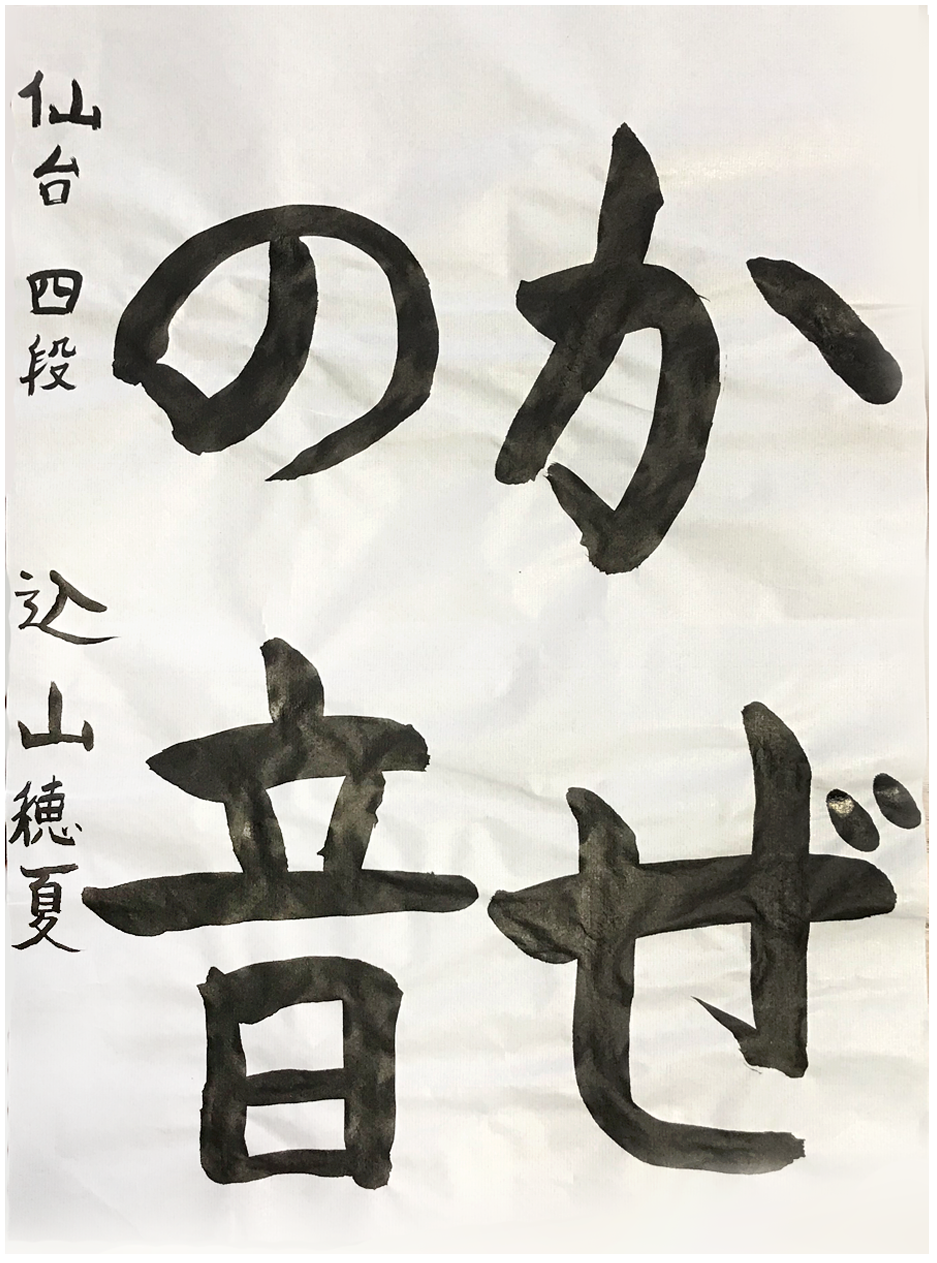 かぜ
の音
仙台 四段 込山穂夏